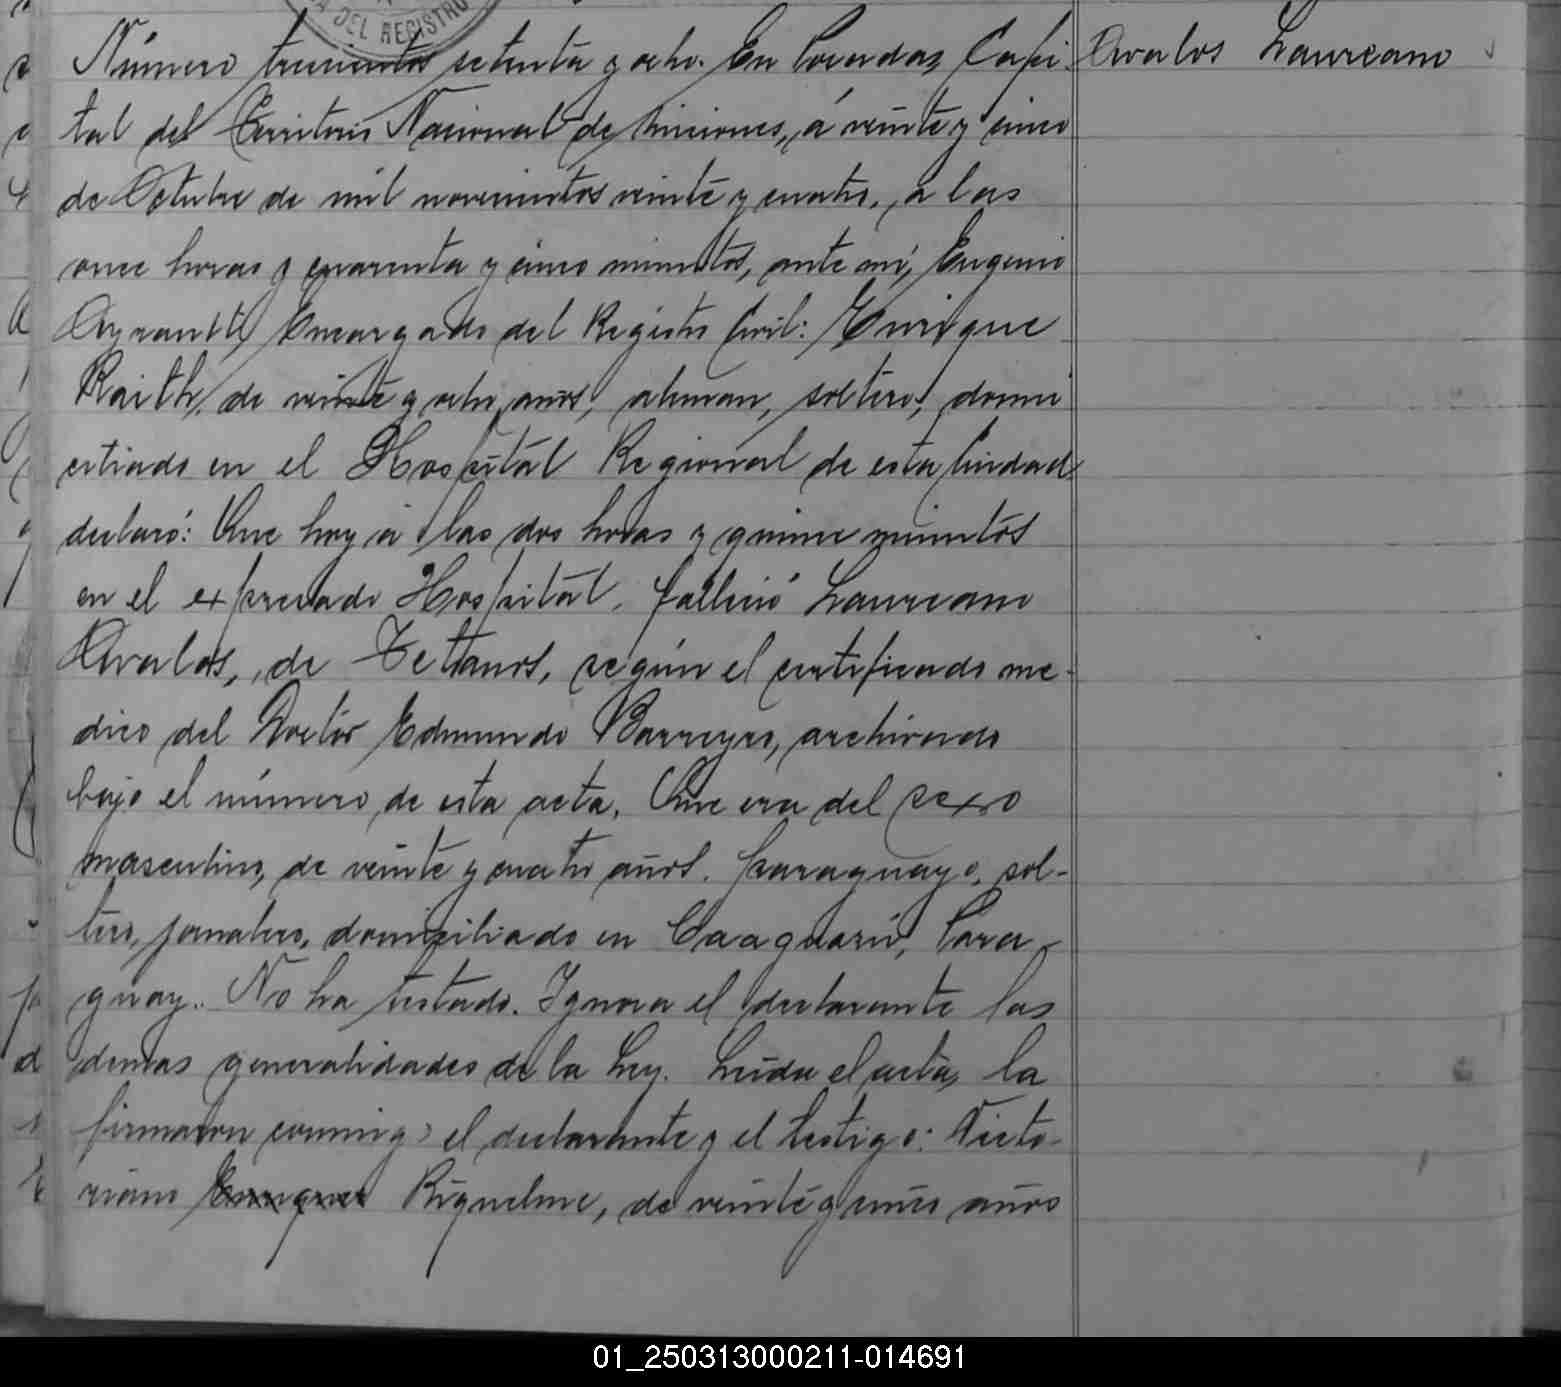 DEL REGISTRO
Número trescientos setenta y ocho. En Posadas, Capi-
tal del Territorio Nacional de Misiones, á veinte y cinco
de Octubre de mil novecientos veinte y cuatro, a las
once horas y cuarenta y cinco minutos, ante mí, Eugenio
Encargado del Registro Civil: Enrique
Raith, de veinte y ocho años, aleman, soltero, domi
ciliado en el Hospital Regional de esta Ciudad,
declaró: Que hoy á las dos horas y quince minutos
en el expresado Hospital, falleció Laureano
Avalos, de Tetanos, según el certificado me-
dico del Doctor Edmundo Barreyro, archivado
bajo el número de esta acta. Que era del sexo
masculino, de veinte y cuatro años, paraguayo, sol-
tero, jornalero, domiciliado en Caaguazú, Para-
guay. No ha testado. Ignora el declarante las
demas generalidades de la Ley. Leida el acta, la
firmaron conmigo el declarante y el testigo: Victo-
riano Riquelme, de veinte y cinco años
Avalos Laureano
01_250313000211-014691